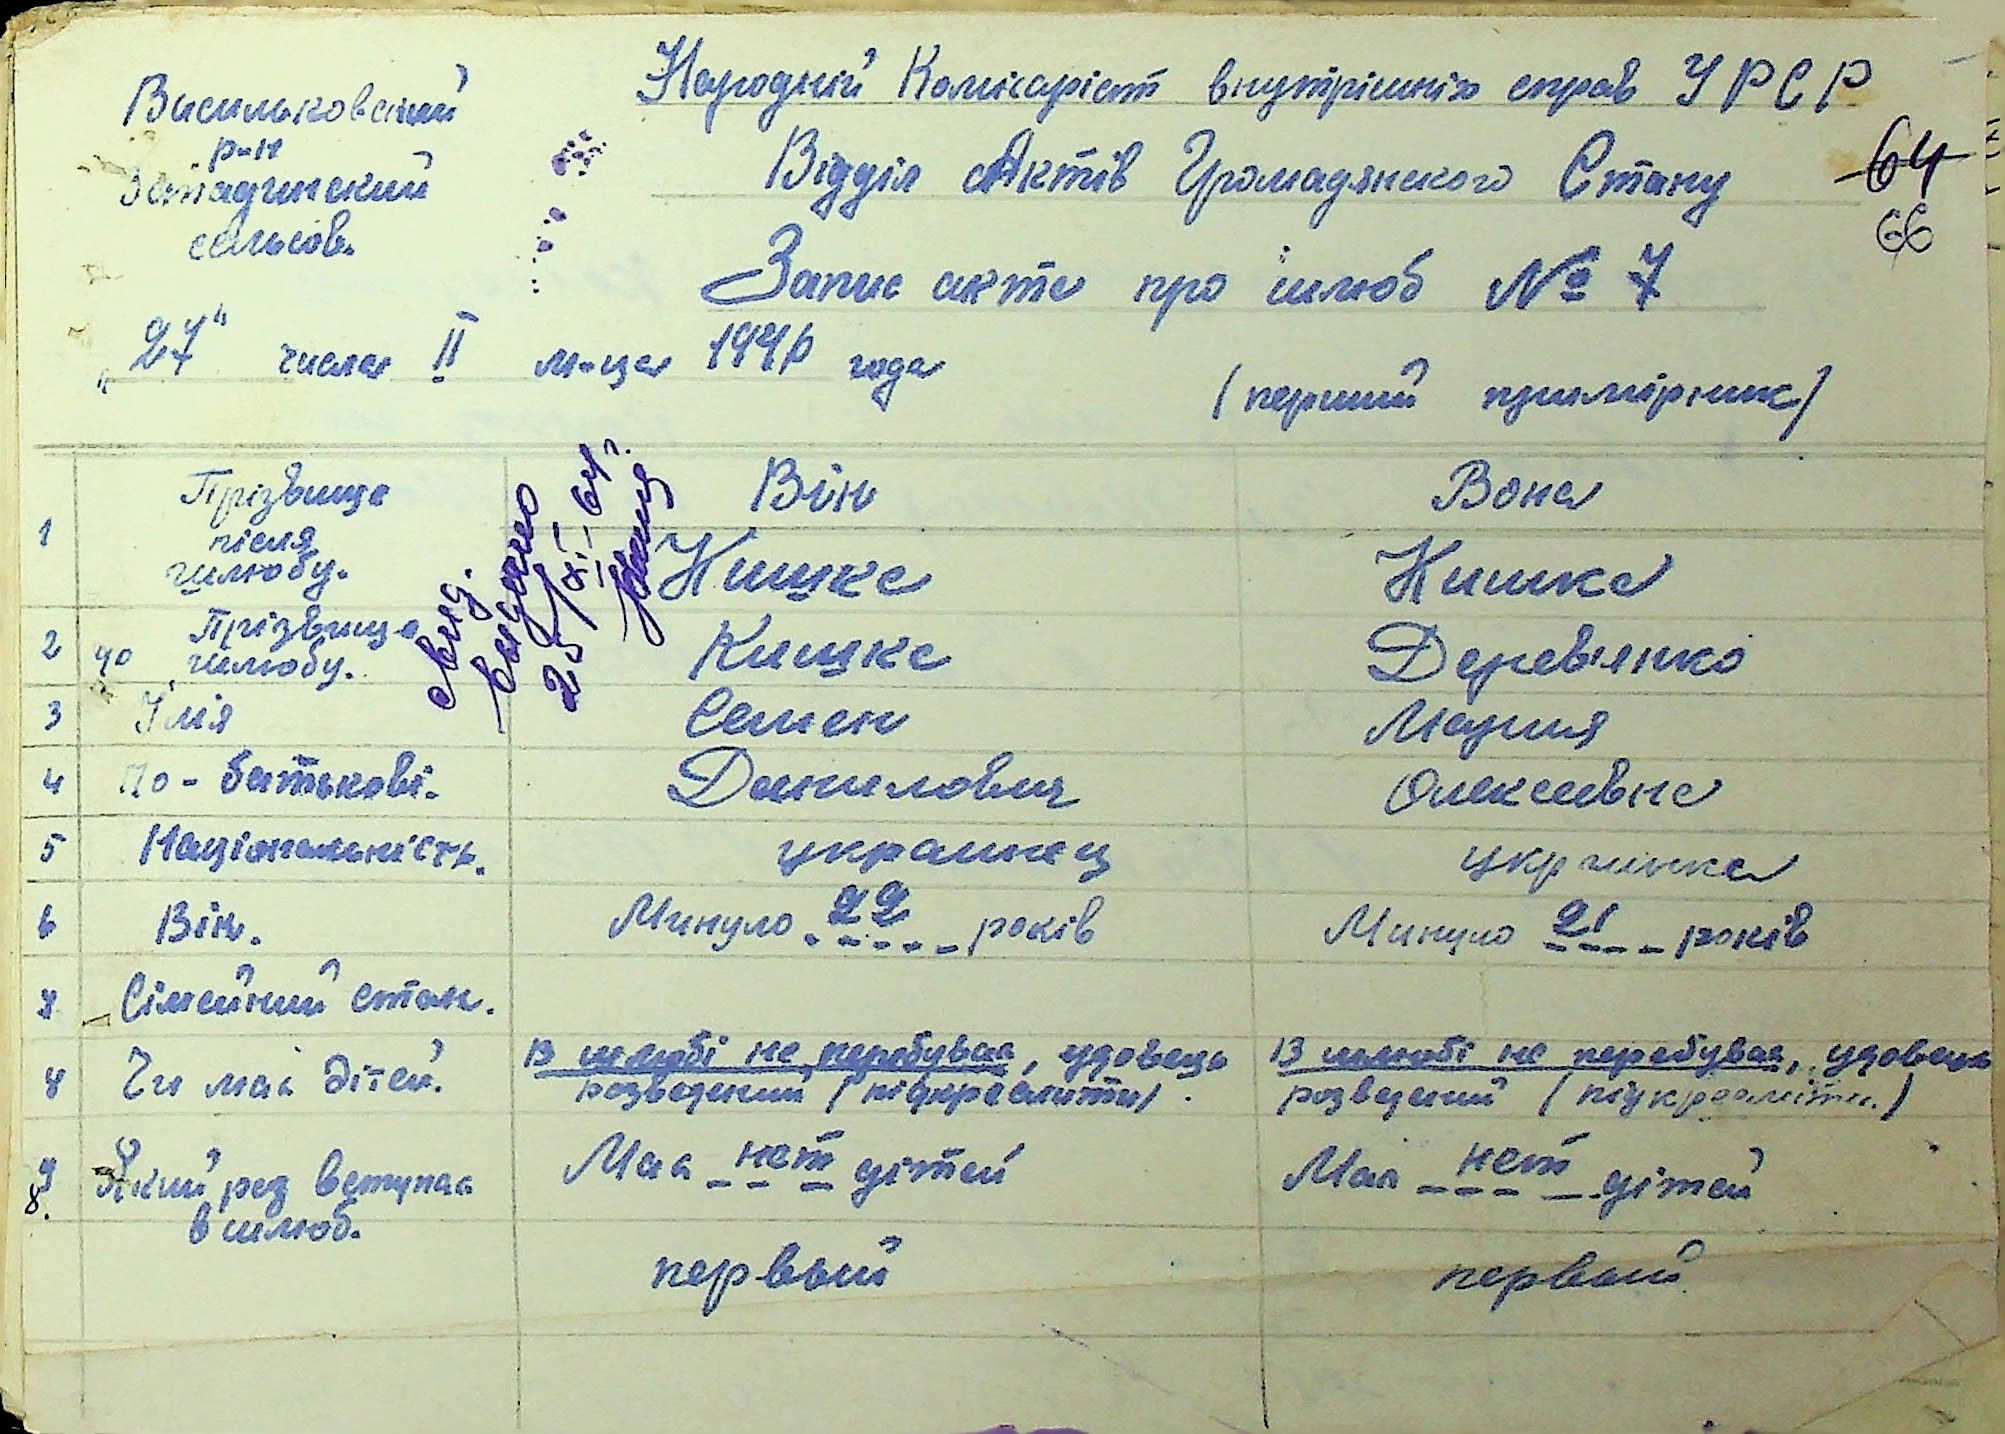 Васильковский
р-н
сельсов.
Народний Комісаріат внутрішніх справ УРСР
Відділ Актів Громадянского Стану
64
66
Запис акта про шлюб № 7
"27" числа II м-ца года
(перший примірник)
1 Прізвище після шлюбу.
Він
Вона
Кишка
Кишка
2 Прізвище до шлюбу.
Кишка
Деревянко
3 Імія
Семен
Мария
4 По-батькові.
Данилович
Олексеївна
5 Національність.
украинец
украинка
6 Вік.
Минуло 22 років
Минуло 21 років
7 Сімейний стан.
8 Чи має дітей.
В шлюбі не перебував, удовець
розведений (підкреслити).
В шлюбі не перебував, удовець
розведений (підкреслити)
9 Який раз вступає
8. в шлюб.
Має нет дітей
Має нет дітей
первый
первый
видано
25/XI-64р.